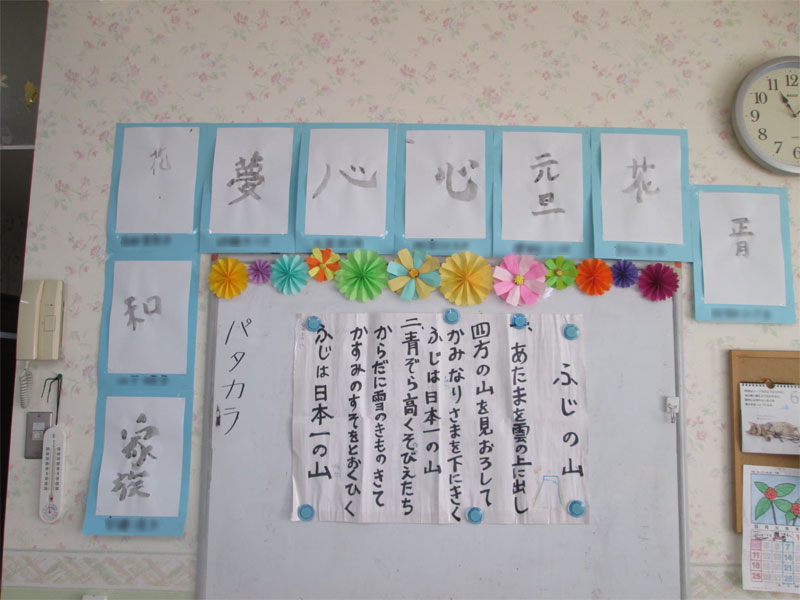 花
夢
心
心
元旦
花
青
和
家族
パタカラ
ふじの山
一、あたまを雲の上に出し
四方の山を見おろして
かみなりさまを下にきく
ふじは日本一の山
二、青ぞら高くそびえたち
からだに雪のきものきて
かすみのすそをとおくひく
ふじは日本一の山